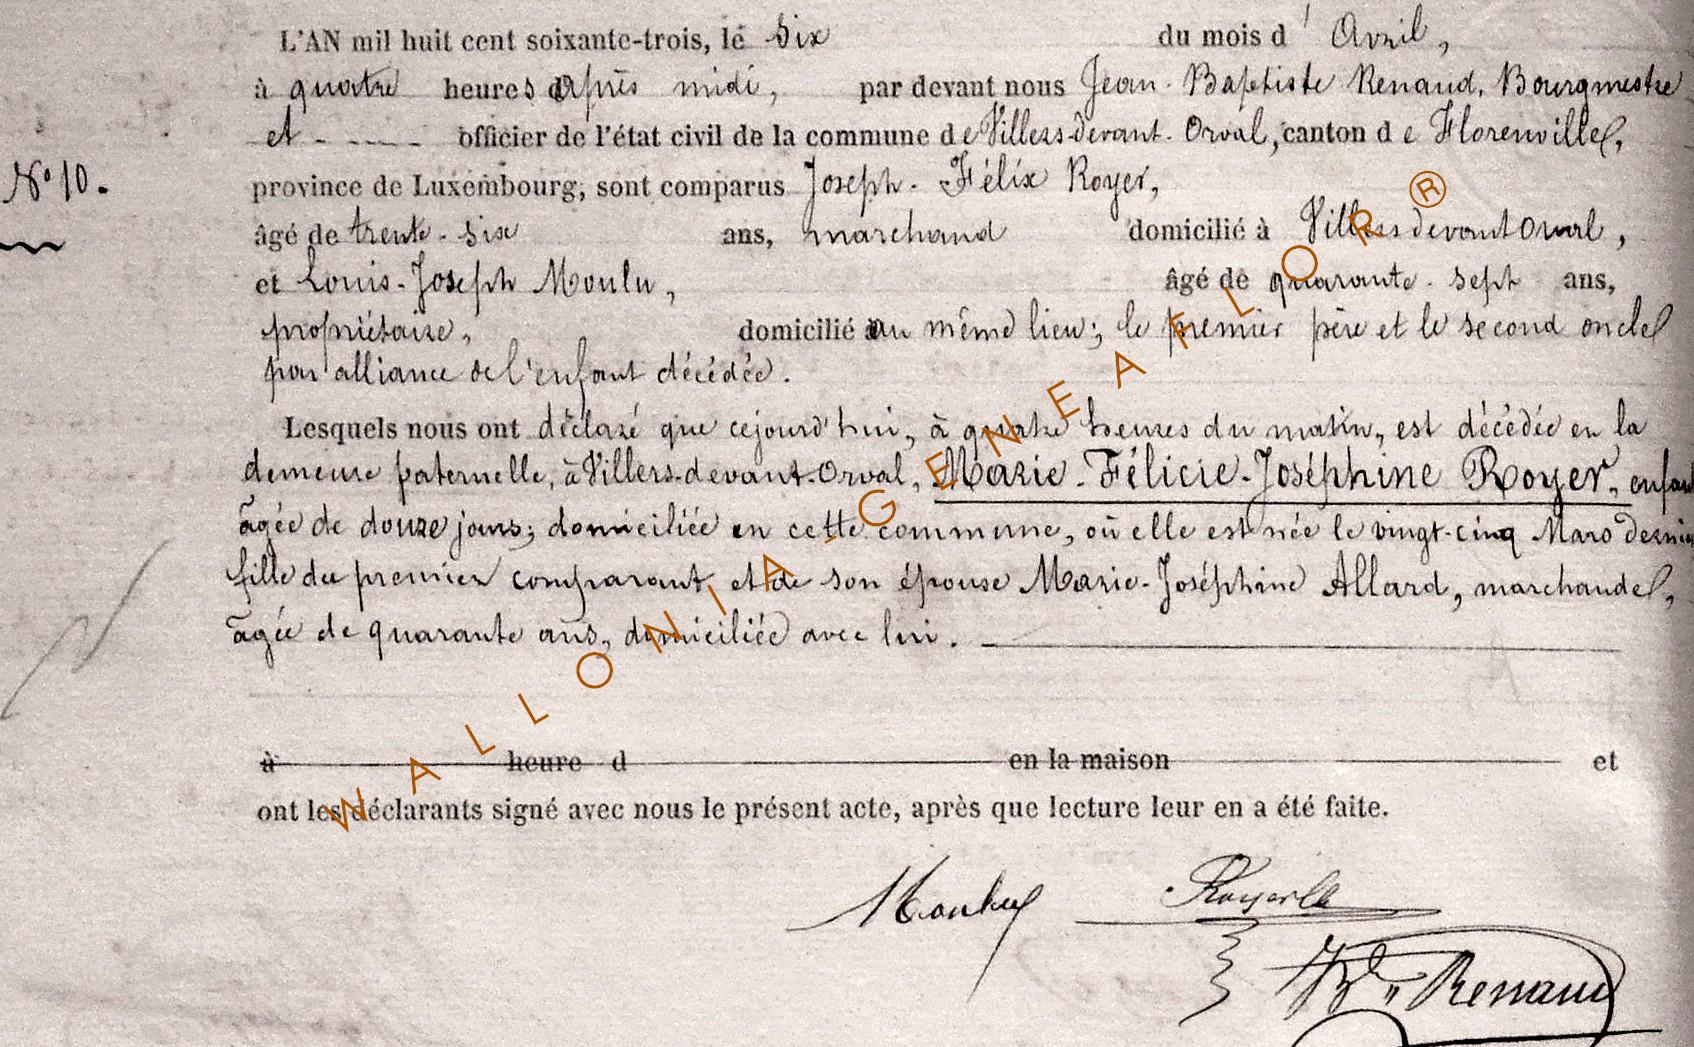 L'AN mil huit cent soixante-trois, le Six du mois d' Avril,
à quatre heures d'Après midi, par devant nous Jean-Baptiste Renaud, Bourgmestre
et - ---- officier de l'état civil de la commune de Villers-devant-Orval, canton de Florenville,
N° 10.
province de Luxembourg, sont comparus Joseph-Félix Royer,
âgé de trente-six ans, marchand domicilié à Villers devant Orval,
et Louis-Joseph Moulu, âgé de quarante-sept ans,
propriétaire, domicilié au même lieu; le premier père et le second oncle
par alliance de l'enfant décédée.
Lesquels nous ont déclaré que cejourd'hui, à quatre heures du matin, est décédée en la
demeure paternelle, à Villers-devant-Orval, Marie-Félicie-Joséphine Royer, enfant
âgée de douze jours; domiciliée en cette commune, où elle est née le vingt-cinq Mars dernier
fille du premier comparant et de son épouse Marie-Joséphine Allard, marchande,
âgée de quarante ans, domiciliée avec lui.
à heure d en la maison et
ont les déclarants signé avec nous le présent acte, après que lecture leur en a été faite.
Moulu
Renaud
WALLONIA-GENEAFLOR®